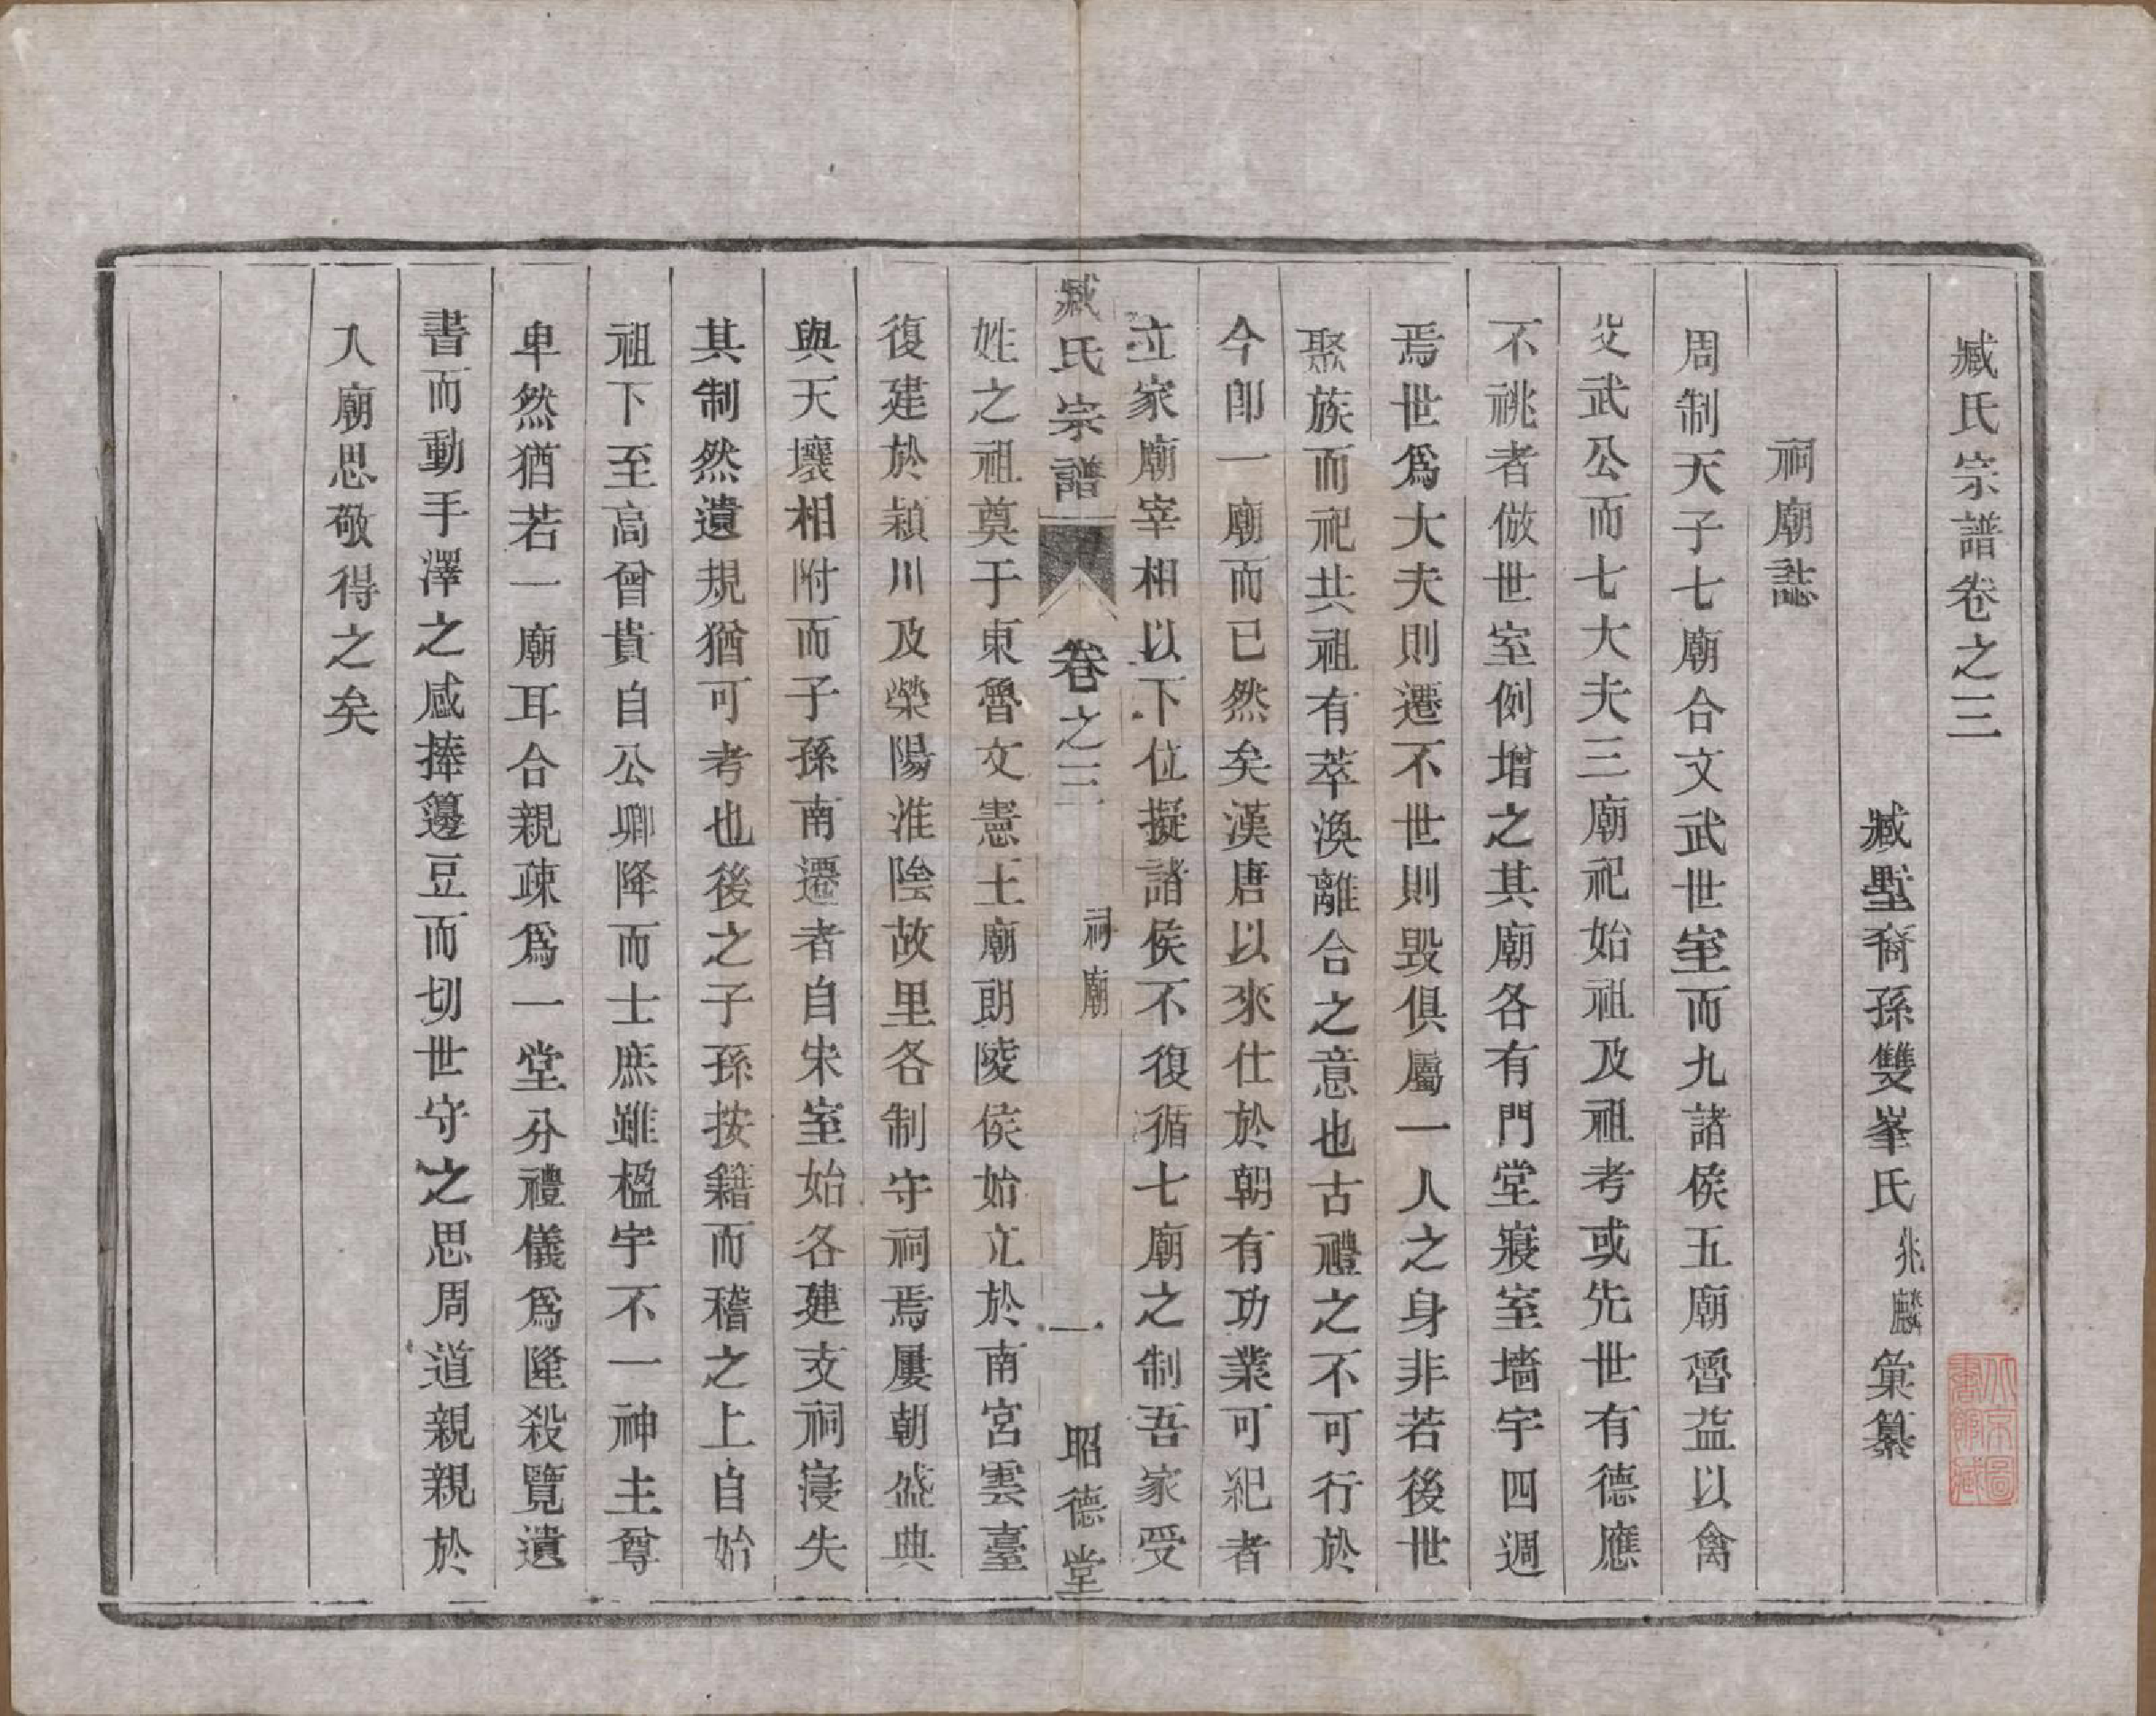 臧氏宗譜卷之三
臧墅裔孫雙峯氏兆麟彙纂
祠廟誌
周制天子七廟合文武世室而九諸侯五廟魯益以禽
父武公而七大夫三廟祀始祖及祖考或先世有德應
不祧者倣世室例增之其廟各有門堂寢室墻宇四週
焉世爲大夫則遷不世則毀俱屬一人之身非若後世
聚族而祀共祖有萃渙離合之意也古禮之不可行於
今卽一廟而已然矣漢唐以來仕於朝有功業可祀者
立家廟宰相以下位擬諸侯不復循七廟之制吾家受
臧氏宗譜 卷之三 祠廟 一 昭德堂
姓之祖奠于東魯文憲土廟朗陵侯始立於南宮雲臺
復建於潁川及榮陽淮陰故里各制守祠焉屢朝盛典
與天壤相附而子孫南遷者自宋室始各建支祠寖失
其制然遺規猶可考也後之子孫按籍而稽之上自始
祖下至高曾貴自公卿降而士庶雖楹宇不一神主尊
卑然猶若一廟耳合親疎爲一堂分禮儀爲隆殺覽遺
書而動手澤之感捧籩豆而切世守之思周道親親於
入廟思敬得之矣